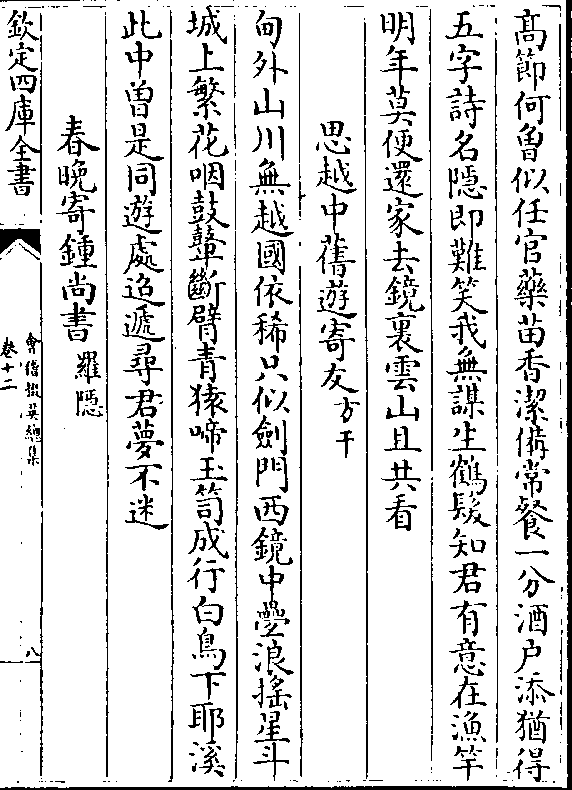 髙節何曽似任官藥苗香潔備常餐一分酒户添猶得
五字詩名隱即難笑我無謀生鶴髮知君有意在漁竿
明年莫便還家去鏡裏雲山且共看
思越中舊遊寄友方干
甸外山川無越國依稀只似劍門西鏡中疊浪摇星斗
城上繁花咽鼓鼙斷臂青猿啼玉笥成行白鳥下耶溪
此中曽是同遊處迢遞尋君夢不迷
春晚寄鍾尚書羅隱
欽定四庫全書
會稽掇英總集
卷十二
八